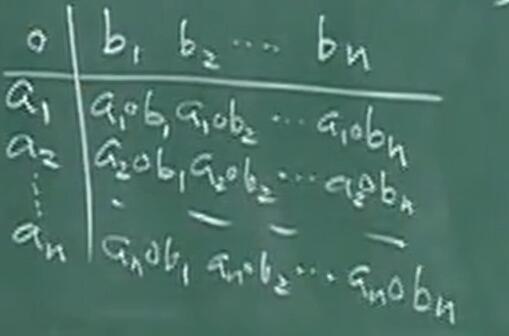 ∘ b₁ b₂ ⋯ bₙ
a₁ a₁∘b₁ a₁∘b₂ ⋯ a₁∘bₙ
a₂ a₂∘b₁ a₂∘b₂ ⋯ a₂∘bₙ
⋮
aₙ aₙ∘b₁ aₙ∘b₂ ⋯ aₙ∘bₙ